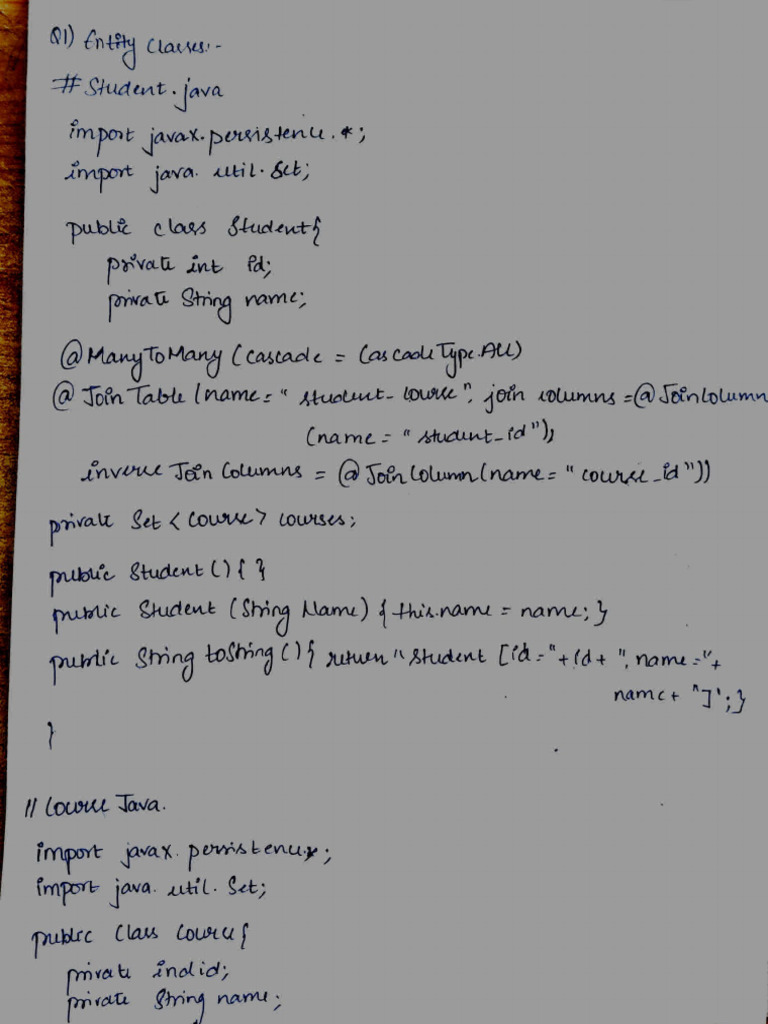 Q1) Entity Classes:-
# Student.java
import javax.persistence.*;
import java.util.Set;
public class Student{
private int id;
private String name;
@ManyToMany (cascade = CascadeType.All)
@JoinTable (name = "student_course", join columns = @JoinColumn
(name = "student_id"),
inverse Join Columns = @JoinColumn(name = "course_id"))
private Set <Course> courses;
public Student () { }
public Student (String Name) { this.name = name; }
public String toString () { return "Student [id = " + id + ", name = " +
name + "]'; }
}
// Course Java.
import javax.persistence*;
import java.util.Set;
public Class Course{
private indid;
private String name;